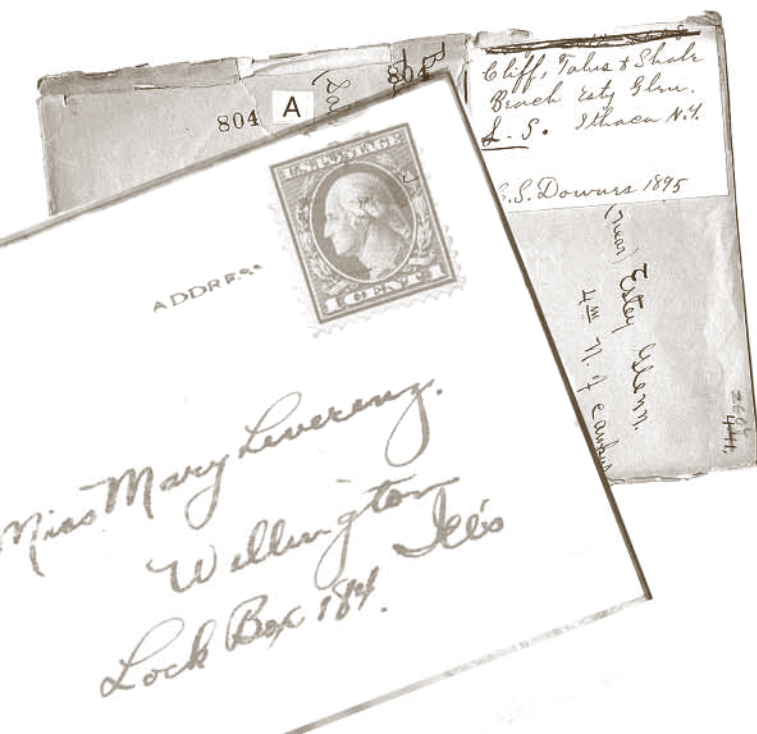 804
A
804
Cliff, Talus & Shale
Beach Esty Glen.
L. S. Ithaca N.Y.
S. Downes 1895
(near) Estey Glenn.
4 m N. of
U.S. POSTAGE
1 CENT 1
ADDRESS
Miss Mary Leverenz.
Wilmington
Ill's
Lock Box 184.